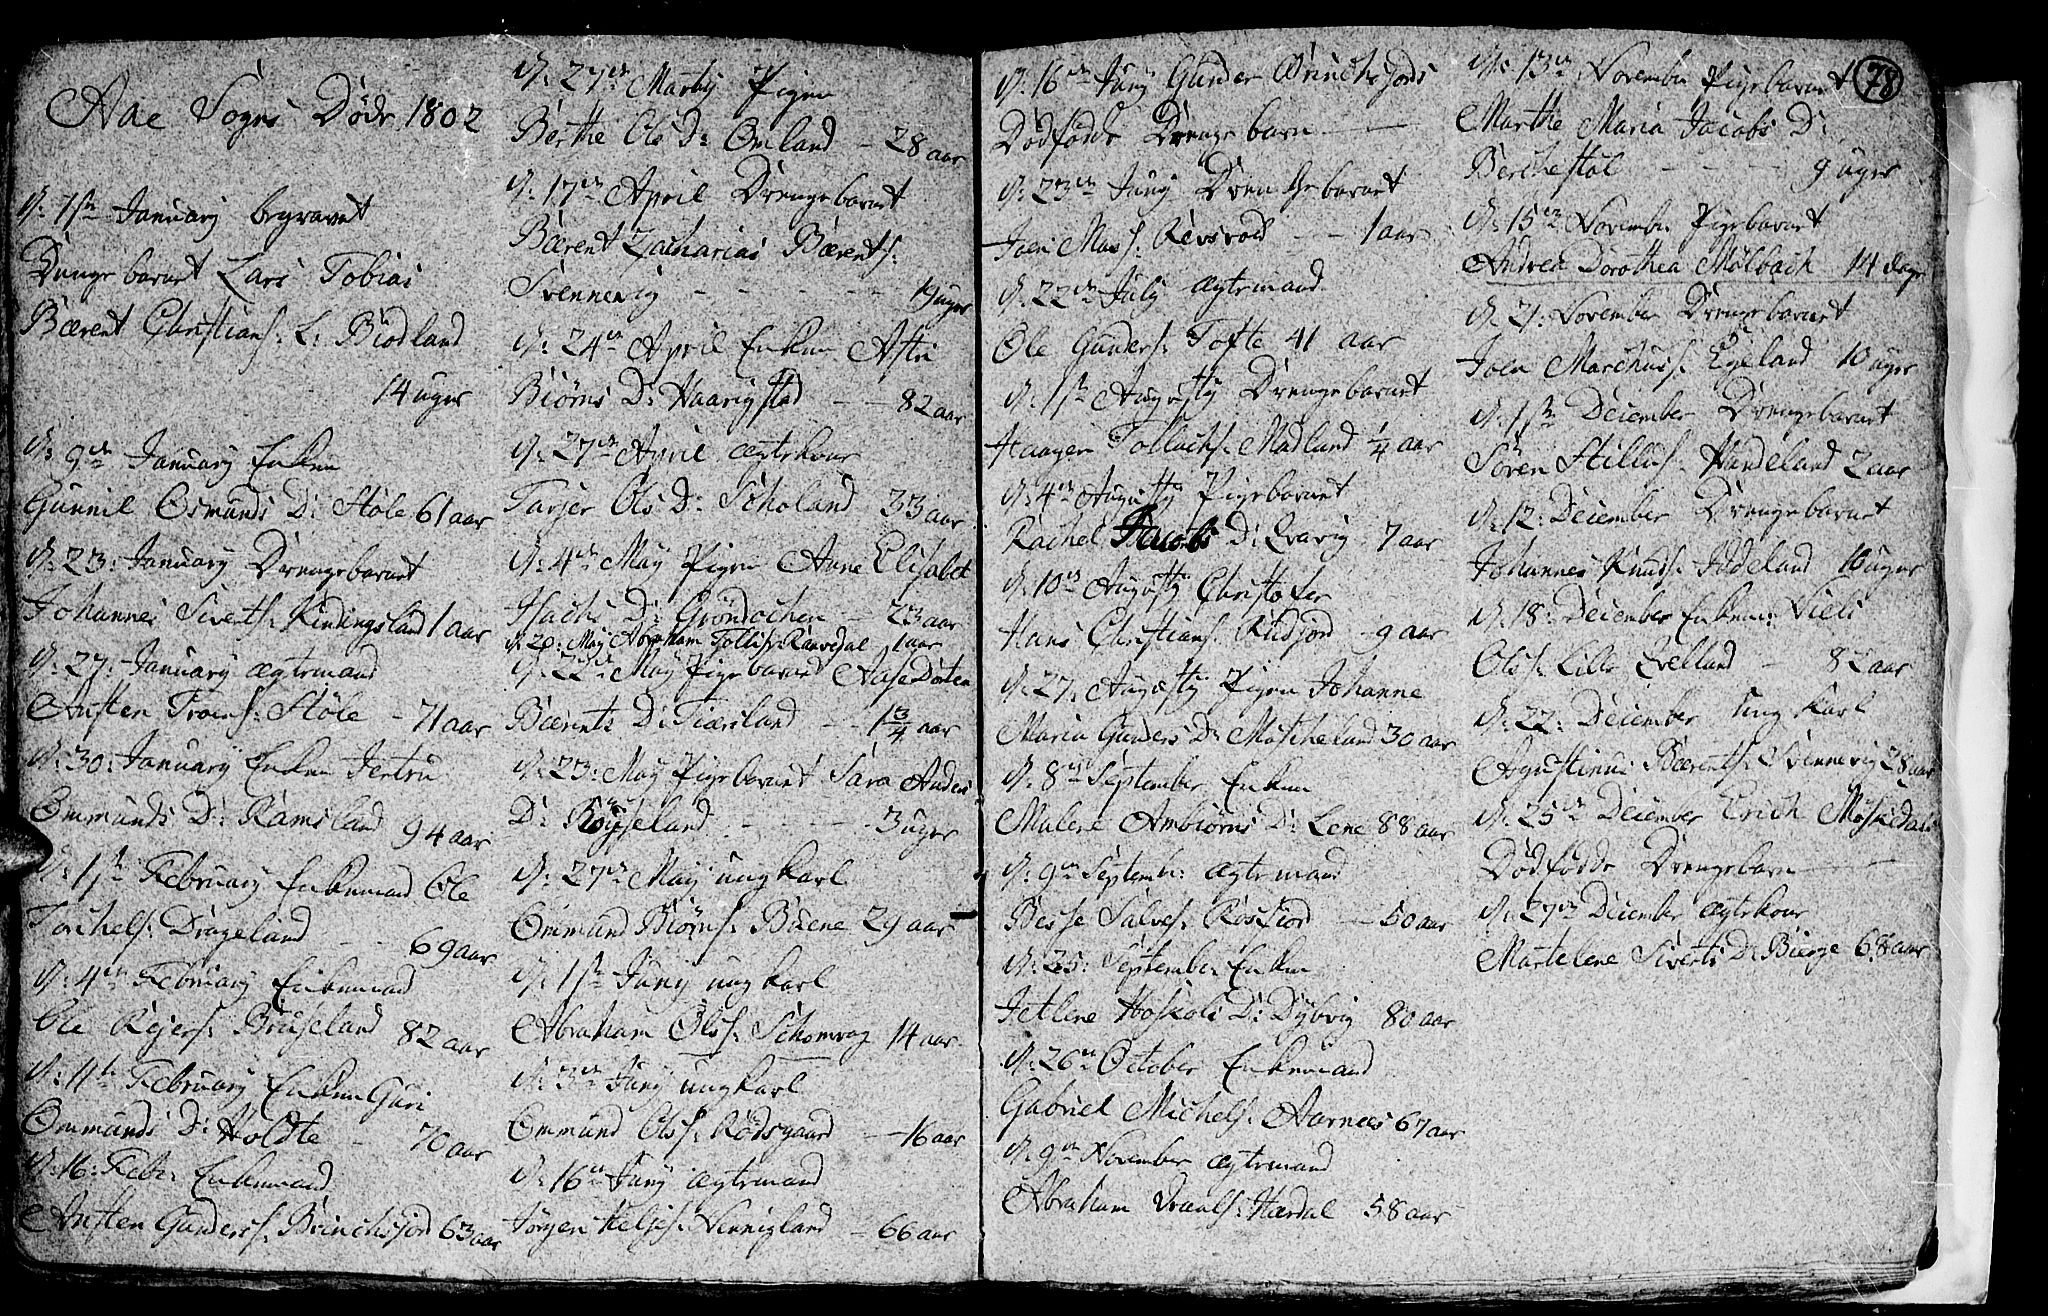 Aae Sogns Døde 1802
D: 1ste January begravet
Drengebarnet Lars Tobias
Bærent Christians: L: Biodland
14 uger
D: 9de January Enken
Gunnil Osmunds D: Støle 61 aar
D: 23: January Drengebarnet
Johannes Siverts: Kindingsland 1 aar
D: 27: January Ægtemand
Austen Troens: Støle - 71 aar
D: 30: January Enken Jertru
Ommunds D: Ramsland 94 aar
D: 1ste February Enkemand Ole
Torchels: Drageland - - 69 aar
D: 4de February Enkemand
Ole Rejers: Bruseland 82 aar
D: 11te February Enken Guri
Ommunds D: Holdte - 70 aar
D: 16: Feb: Enkemand
Austen Gunders: Brinchsjord 63 aar
D: 27de Marty Pigen
Berthe Ols D: Omland - 28 aar
D: 17de April Drengebarnet
Bærent Zacharias Bærents:
Svennevig - - - - - 19 uger
D: 24de April Enken Astri
Biørns D: Haarigstad - 82 aar
D: 27de April Ægtekone
Tarjer Ols D: Scholand 33 aar
D: 4de May Pigen Anne Elisabet
Isachs D: Grøndochen - 23 aar
D: 20: May Abraham Tollis: Ranvedal 1 aar
D: 22de May Pigebarnet Aase Dorten
Bærents D: Fiærsland - - 1 3/4 aar
D: 23: May Pigebarnet Sara Anders
D: Røysseland - - - - 3 uger
D: 27de May ung karl
Ommund Biørns: Bøene 29 aar
D: 1ste Juny ung karl
Abraham Ols: Schomrag 14 aar
D: 3de Juny ung karl
Ommund Ols: Rødsgaard - 16 aar
D: 16de Juny Ægtemand
Jørgen Keljes: Hennigland - 66 aar
D: 16de Juny Gunder Brinchsjords
Dødfødde Drengebarn - -
D: 23de Juny Drengebarnet
Joen Mass: Revsvold - - 1 aar
D: 22de July Ægtemand
Ole Gunders: Tofte 41 aar
D: 1ste Augusty Drengebarnet
Haagen Tollachs: Madland 1/4 aar
D: 4de Augusty Pigebarnet
Rachel Jacobs D: Qvavig 7 aar
D: 10de Augusty Christofer
Hans Christians: Kudsjord 9 aar
D: 27: Augusty Pigen Johanne
Maria Gunders D: Møscheland 30 aar
D: 8de September Enken
Malene Ambiørns D: Lene 88 aar
D: 9de Septemb: Ægtemand
Besse Salves: Rossiord - 50 aar
D: 25: September Enken
Jetlene Hoskols D: Dybvig 80 aar
D: 26de October Enkemand
Gabriel Michels: Aarnees 67 aar
D: 9de November Ægtemand
Abraham Vraals: Hærdal 58 aar
78
D: 13de November Pigebarnet
Marthe Maria Jacobs D:
Berchestøl - - - - 9 uger
D: 15de November Pigebarnet
Andrea Dorothea Mølbach 14 dage
D: 21: November Drengebarnet
Joen Marchus: Egeland 10 uger
D: 1ste December Drengebarnet
Søren Stillus: Handeland 2 aar
D: 12: December Drengebarnet
Johannes Knuds: Jødeland 10 uger
D: 18: December Enken: Vieli
Ols: Lille Qvelland - 82 aar
D: 22: December Ung karl
Agustinus Bærents: Svennevig 28 aar
D: 25de December Erich Møskedals
Dødfødde Drengebarn - -
D: 27de December Ægtekone
Martelene Siverts D: Bierge 68 aar